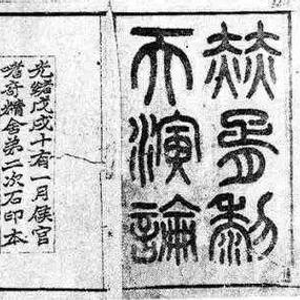 赫胥黎
天演論
光緒戊戌十有一月矦官
嗜奇精舍弟二次石印本